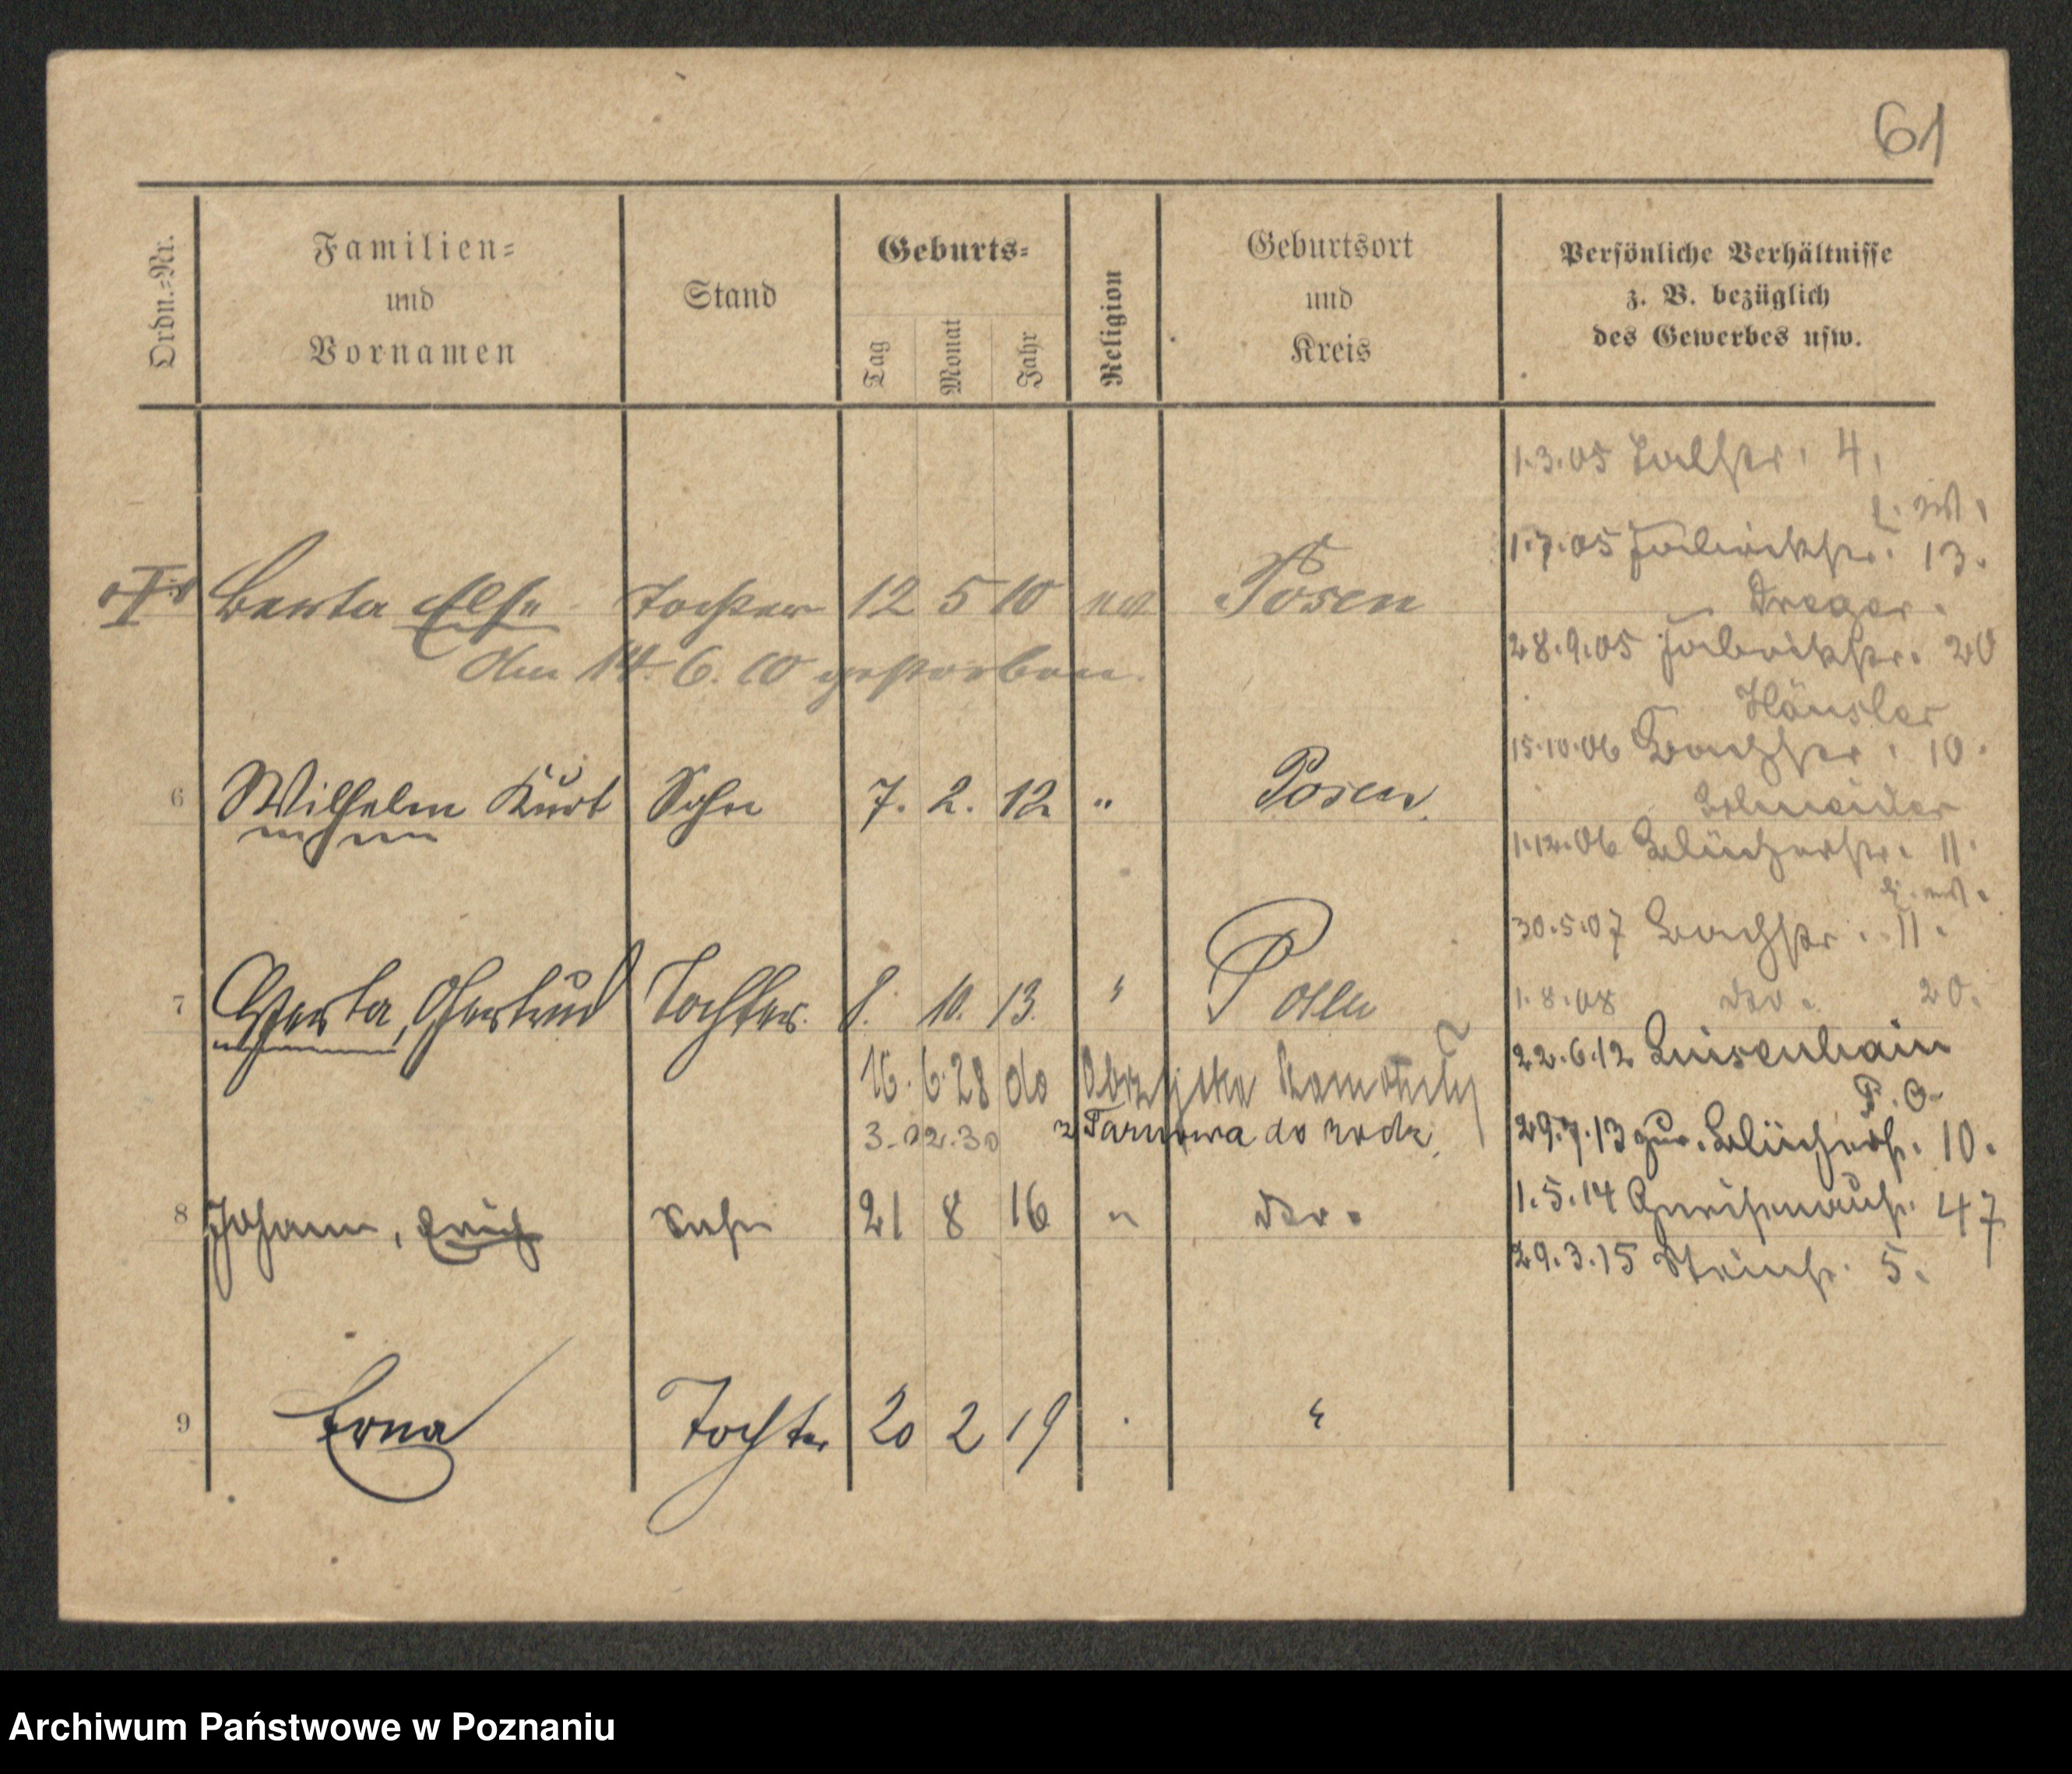 61
Ordn.-Nr.
Familien-
und
Vornamen
Stand
Geburts-
Tag
Monat
Jahr
Religion
Geburtsort
und
Kreis
Persönliche Verhältnisse
z. B. bezüglich
des Gewerbes usw.
1.3.05 4.
1.7.05 Fabrikstr. 13.
Dreger.
Berta Else Tochter 12 5 10 ev. Posen
den 14. 6. 10 gestorben.
28.9.05 Fabrikstr. 20
Häusler
15.10.06 Bachstr. 10.
Schneider
6 Wilhelm Kurt Sohn 7. 2. 12 " Posen.
1.12.06 Blücherstr. 11.
30.5.07 Bachstr. 11.
1.8.08 do. 20.
7 Gerta, Gertrud Tochter. 8. 10. 13. " Posen
22.6.12 Luisenhain
P. O.
16. 6. 28 do Obrzycka
3.02.30 z Tarnowa do rodz.
29.7.13 zur. Blücherstr. 10.
1.5.14 Gneisenaustr. 47
8 Johann, Erich Sohn 21 8 16 " do.
29.3.15 Steinstr. 5.
9 Erna Tochter 20 2 19 "
Archiwum Państwowe w Poznaniu